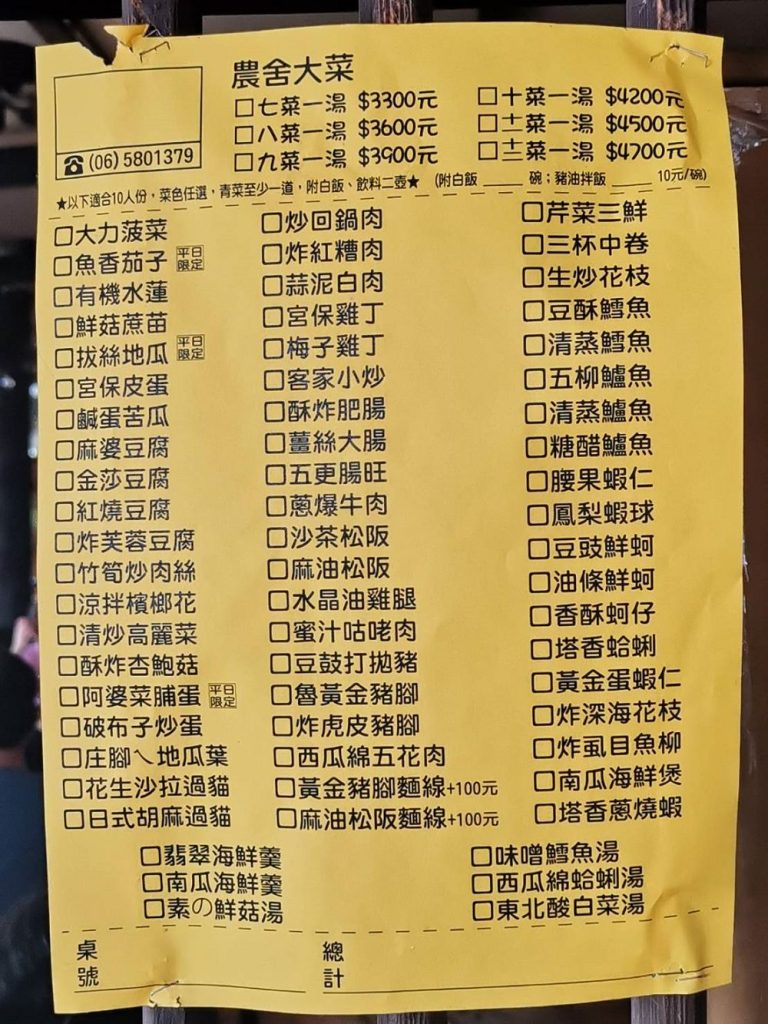 農舍大菜
☎(06)5801379
□七菜一湯 $3300元
□八菜一湯 $3600元
□九菜一湯 $3900元
□十菜一湯 $4200元
□十一菜一湯 $4500元
□十二菜一湯 $4700元
★以下適合10人份，菜色任選，青菜至少一道，附白飯、飲料二壺★ (附白飯____碗；豬油拌飯____10元/碗)
□大力菠菜
□魚香茄子 平日限定
□有機水蓮
□鮮菇蔗苗
□拔絲地瓜 平日限定
□宮保皮蛋
□鹹蛋苦瓜
□麻婆豆腐
□金莎豆腐
□紅燒豆腐
□炸芙蓉豆腐
□竹筍炒肉絲
□涼拌檳榔花
□清炒高麗菜
□酥炸杏鮑菇
□阿婆菜脯蛋 平日限定
□破布子炒蛋
□庄腳ㄟ地瓜葉
□花生沙拉過貓
□日式胡麻過貓
□炒回鍋肉
□炸紅糟肉
□蒜泥白肉
□宮保雞丁
□梅子雞丁
□客家小炒
□酥炸肥腸
□薑絲大腸
□五更腸旺
□蔥爆牛肉
□沙茶松阪
□麻油松阪
□水晶油雞腿
□蜜汁咕咾肉
□豆鼓打拋豬
□魯黃金豬腳
□炸虎皮豬腳
□西瓜綿五花肉
□黃金豬腳麵線+100元
□麻油松阪麵線+100元
□芹菜三鮮
□三杯中卷
□生炒花枝
□豆酥鱈魚
□清蒸鱈魚
□五柳鱸魚
□清蒸鱸魚
□糖醋鱸魚
□腰果蝦仁
□鳳梨蝦球
□豆豉鮮蚵
□油條鮮蚵
□香酥蚵仔
□塔香蛤蜊
□黃金蛋蝦仁
□炸深海花枝
□炸虱目魚柳
□南瓜海鮮煲
□塔香蔥燒蝦
□翡翠海鮮羹
□南瓜海鮮羹
□素の鮮菇湯
□味噌鱈魚湯
□西瓜綿蛤蜊湯
□東北酸白菜湯
桌號
總計